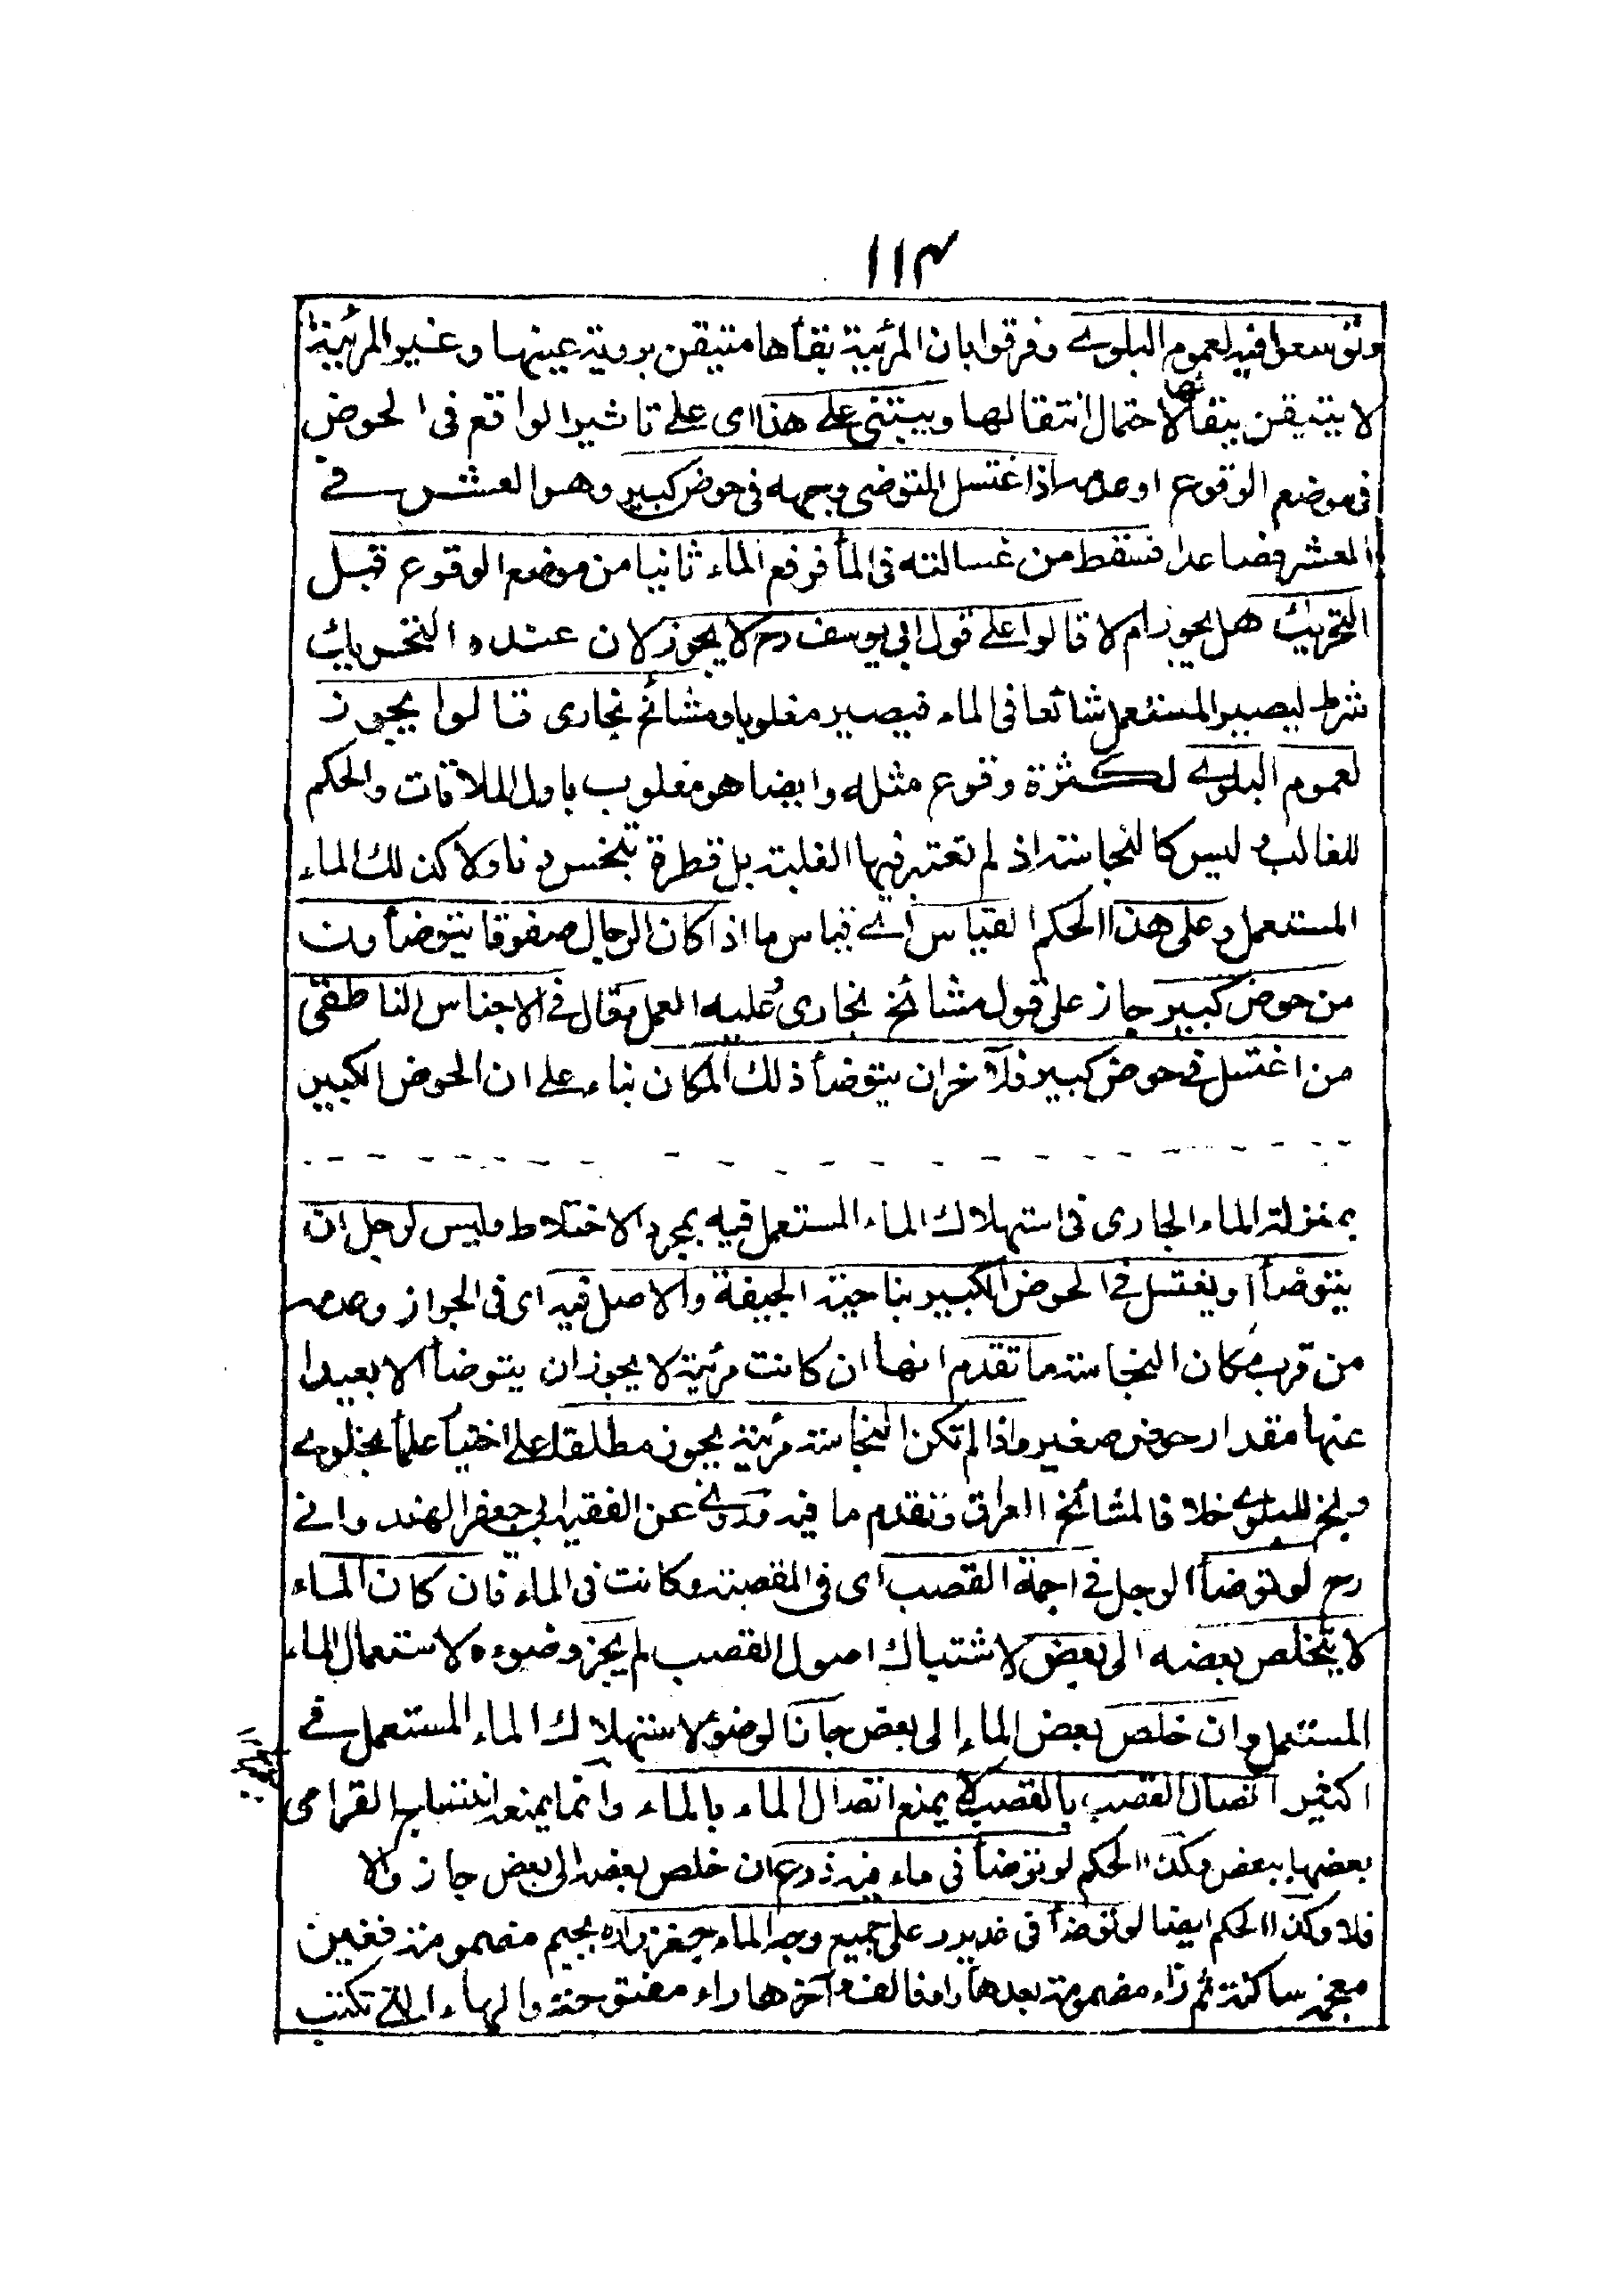 ١١٣
وتوسعوا فيه لعموم البلوے وفرقوا بان المرئية بقأها متيقن بروية عينها وغير المرئية
لا يتيقن ببقأئها لاحتمال انتقالها ويبتنى على هذا اى على تاثير الواقع فى الحوض
فى موضع الوقوع او عدمه اذا غتسل المتوضى وجهه فى حوض كبير وهو العشر فے
العشر فصاعدا فسقط من غسالته فى المأ فرفع الماء ثانيا من موضع الوقوع قبل
التحريك هل يجوز ام لا قالوا على قول ابى يوسف رح لا يجوز لان عنده التحريك
شرط ليصير المستعمل شائعا فى الماء فيصير مغلوبا ومشائخ بخارى قالوا يجوز
لعموم البلوے لكثرة وقوع مثله وايضا هو مغلوب باول الملاقات والحكم
للغالب وليس كالنجاسة اذ لم تعتبر فيها الغلبة بل قطرة تنجس دنا ولا كذلك الماء
المستعمل وعلى هذا الحكم القياس اے قياس ما اذا كان الرجال صفوفا يتوضأون
من حوض كبير جاز على قول مشائخ بخارى وعليه العمل وقال فى الاجناس للناطقى
من اغتسل فى حوض كبير فلآخر ان يتوضأ ذلك المكان بناء على ان الحوض الكبير
بمنزلة الماء الجارى فى استهلاك الماء المستعمل فيه بمجرد الاختلاط وليس لرجل ان
يتوضأ او يغتسل فى الحوض الكبير بناحية الجيفة والاصل فيه اى فى الجواز وعدمه
من قرب مكان النجاسة ما تقدم انها ان كانت مرئية لا يجوز ان يتوضأ الا بعيدا
عنها مقدار حوض صغير واذا لم تكن النجاسة مرئية يجوز مطلقا على اختيأ علمأ بخارے
وبلخ للبلوے خلافا لمشائخ العراق وتقدم ما فيه وروى عن الفقيه ابى جعفر الهندوانے
رح لو توضأ الرجل فى اجمة القصب اى فى المقصبة وكانت فى الماء فان كان الماء
لا يتخلص بعضه الى بعض لاشتباك اصول القصب لم يجز وضوءه لاستعمال الماء
المستعمل وان خلص بعض الماء الى بعض جاز الوضوء لاستهلاك الماء المستعمل فے
اكثير اتصال القصب بالقصب لا يمنع اتصال الماء بالماء وانما يمنعه انتساب القرامى
بعضها ببعض وكذا الحكم لو توضأ فى ماء فيه زرع ان خلص بعضه الى بعض جاز والا
فلا وكذا الحكم ايضا لو توضأ فى غدير على جميع وجه الماء جغزراره بجيم مضمومة فغين
معجمه ساكنة ثم زاء مضمومة بعدها راء فالف وآخرها راء مفتوحة والهاء التى تكتب